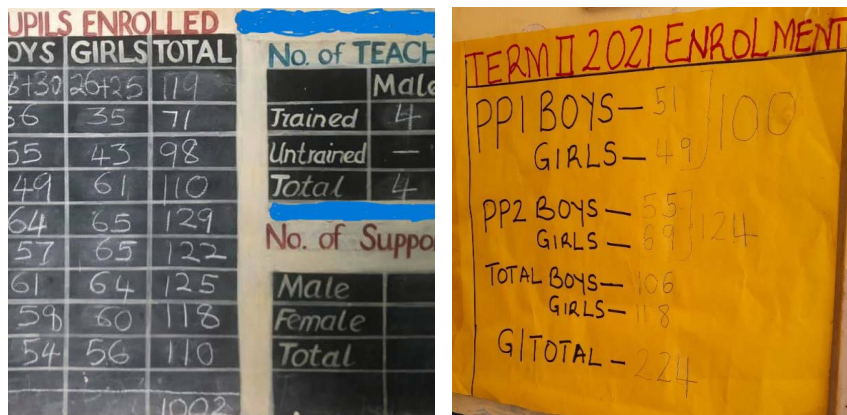 UPILS ENROLLED
OYS GIRLS TOTAL
8+30 26+25 119
36 35 71
55 43 98
49 61 110
64 65 129
57 65 122
61 64 125
58 60 118
54 56 110
1002
No. of TEACH
Male
Trained 4
Untrained —
Total 4
No. of Suppo
Male
Female
Total
TERM II 2021 ENROLMENT
PP1 BOYS — 51
GIRLS — 49
100
PP2 BOYS — 55
GIRLS — 69
124
TOTAL BOYS — 106
GIRLS — 118
G/TOTAL — 224